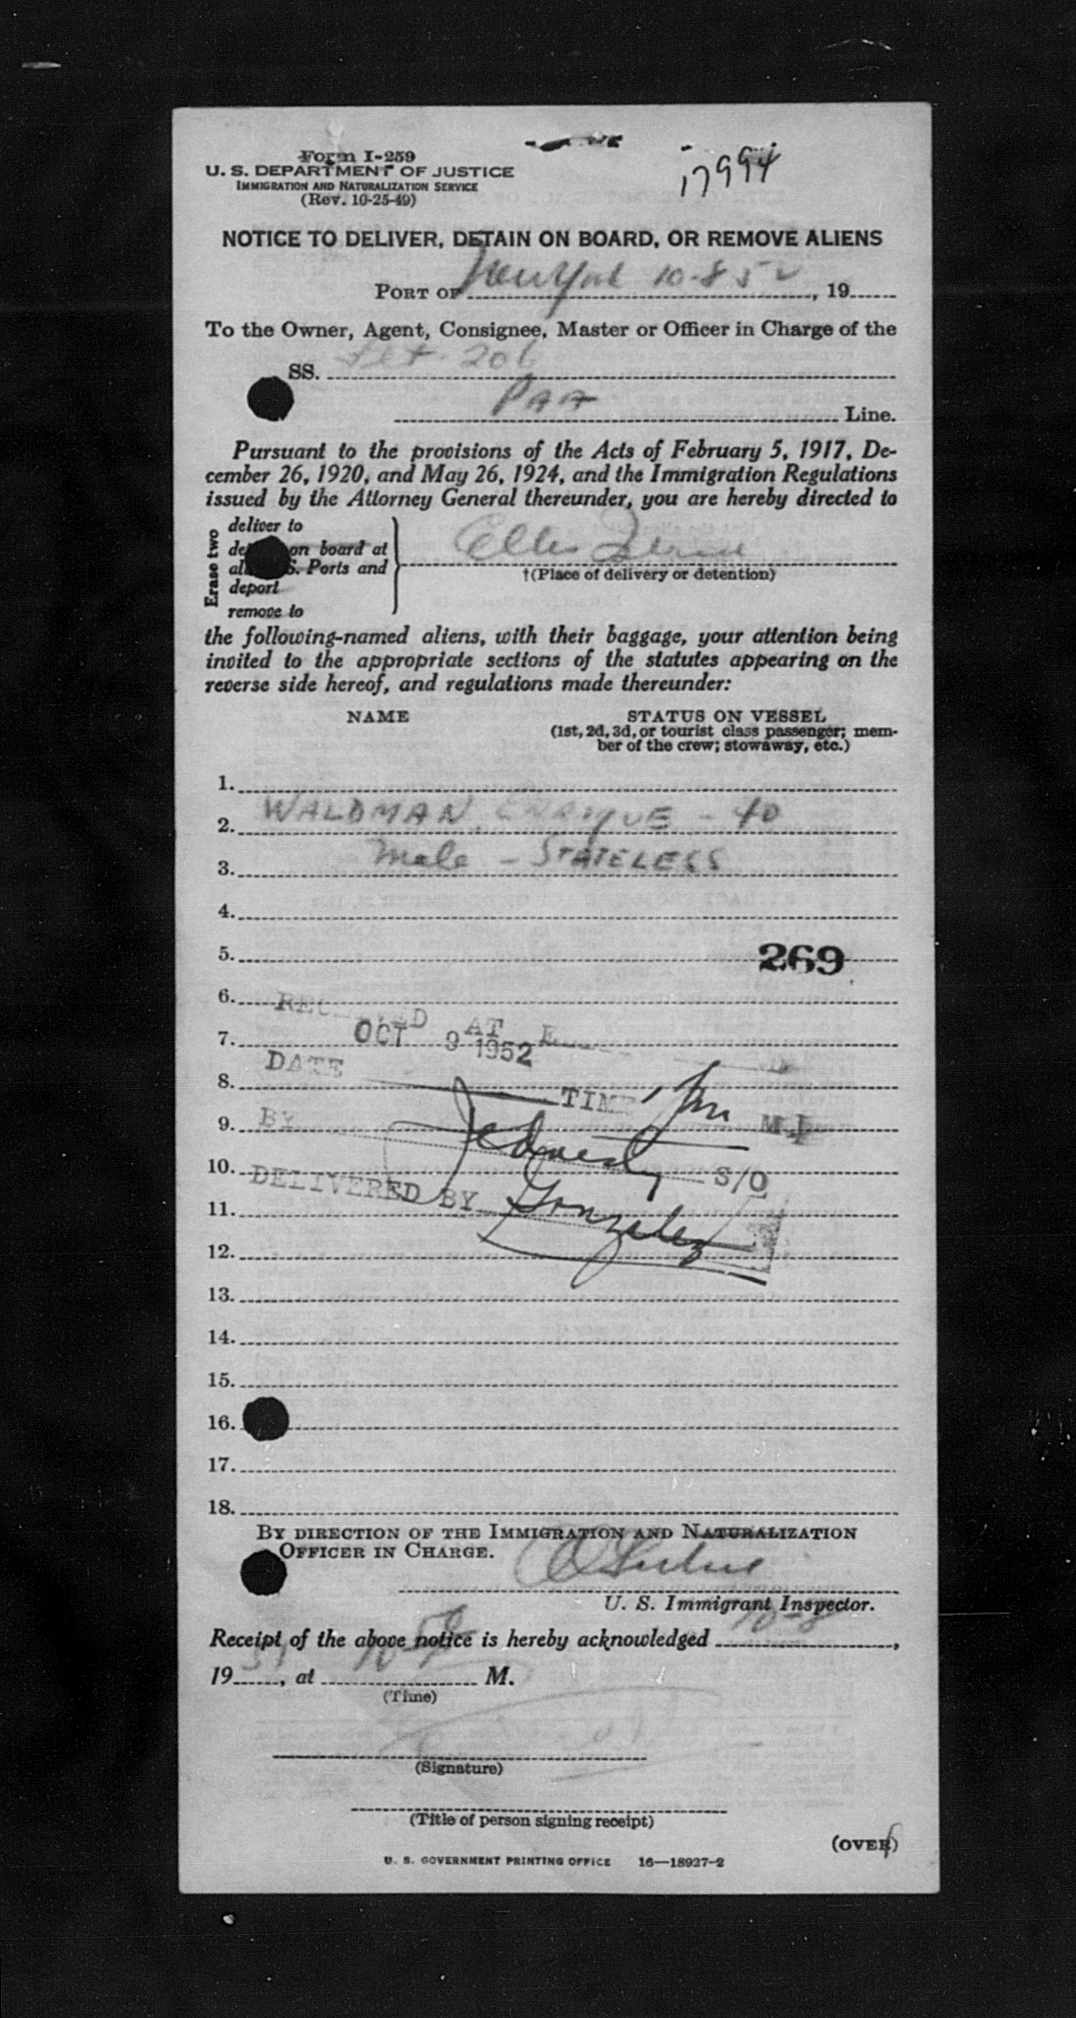 Form I-259
17994
U. S. DEPARTMENT OF JUSTICE
IMMIGRATION AND NATURALIZATION SERVICE
(Rev. 10-25-49)
NOTICE TO DELIVER, DETAIN ON BOARD, OR REMOVE ALIENS
PORT OF New York 10-8 52, 19
To the Owner, Agent, Consignee, Master or Officer in Charge of the
SS. Flt. 206
PAA Line.
Pursuant to the provisions of the Acts of February 5, 1917, De-
cember 26, 1920, and May 26, 1924, and the Immigration Regulations
issued by the Attorney General thereunder, you are hereby directed to
Erase two
deliver to
on board at
Ellis Island
S. Ports and
†(Place of delivery or detention)
deport
remove to
the following-named aliens, with their baggage, your attention being
invited to the appropriate sections of the statutes appearing on the
reverse side hereof, and regulations made thereunder:
NAME
STATUS ON VESSEL
(1st, 2d, 3d, or tourist class passenger; mem-
ber of the crew; stowaway, etc.)
1.
2. WALDMAN, ENRIQUE - 40
3. Male - STATELESS
4.
5. 269
6.
RECEIVED AT E
7. OCT 9 1952
DATE
8.
TIME M
9.
BY
10. S/O
DELIVERED BY Gonzalez
11.
12.
13.
14.
15.
16.
17.
18.
BY DIRECTION OF THE IMMIGRATION AND NATURALIZATION
OFFICER IN CHARGE.
U. S. Immigrant Inspector.
Receipt of the above notice is hereby acknowledged 10-8,
19, at M.
(Time)
(Signature)
(Title of person signing receipt)
(OVER)
U. S. GOVERNMENT PRINTING OFFICE 16—18927-2